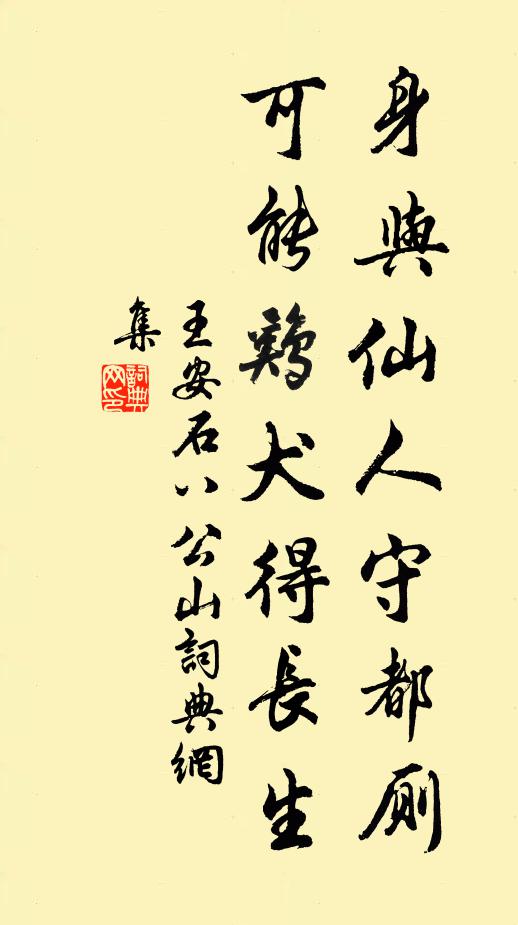 身與仙人守都厠
可能鷄犬得長生
王安石八公山詞典網
集
詞典網印